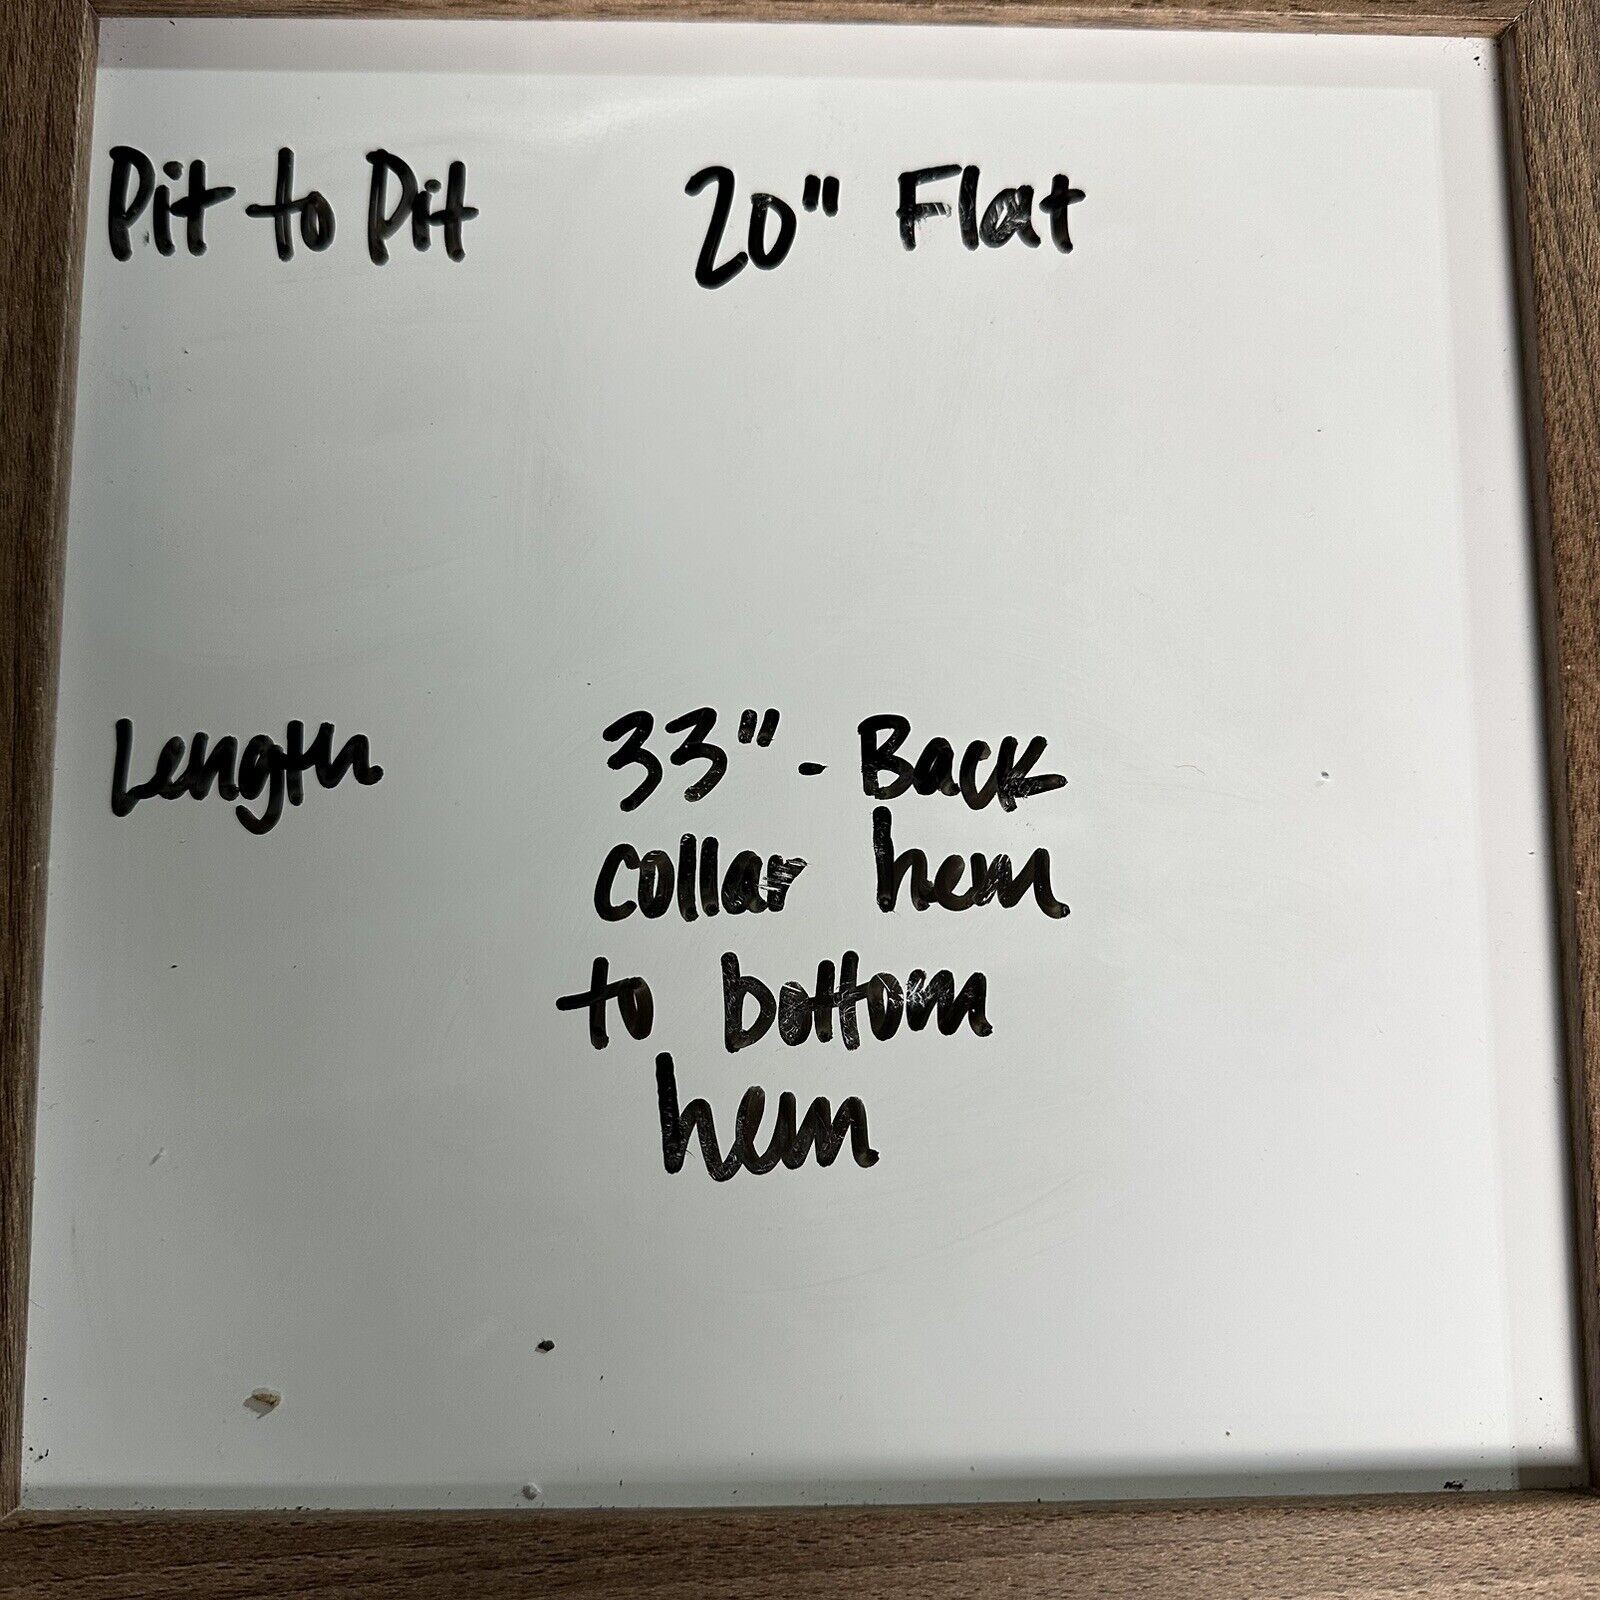 Pit to Pit 20" Flat
Length 33" - Back
collar hem
to bottom
hem